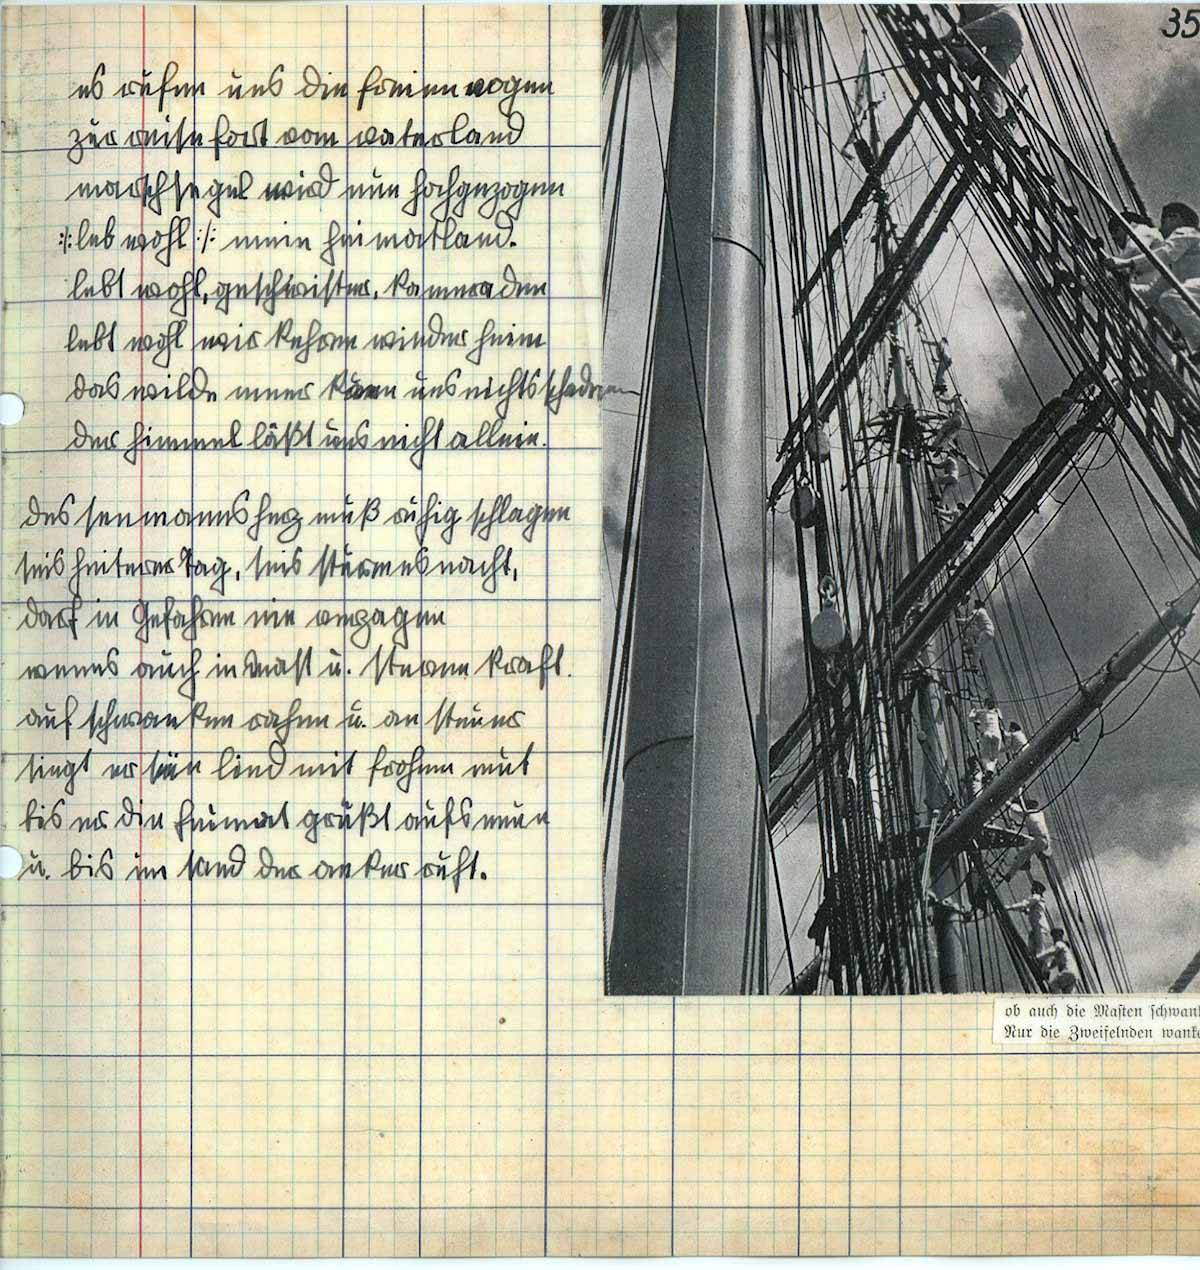 35
es rufen uns die freien wogen
zur reise fort vom vaterland
marschsegel wird nun hochgezogen
:/: leb wohl :/: mein heimatland.
lebt wohl, geschwister, kameraden
lebt wohl wir kehren wieder heim
das wilde meer kann uns nichts schaden
der himmel läßt uns nicht allein.
des seemanns herz muß ruhig schlagen
seis heiterer Tag, seis sturmesnacht,
darf in Gefahren nie verzagen
wenns auch in Mast u. steven kracht.
auf schwanken rahen u. an steuer
singt er sein lied mit frohem mut
bis er die heimat grüßt aufs neue
u. bis im sand der anker ruht.
ob auch die Masten schwank
Nur die Zweifelnden wanke